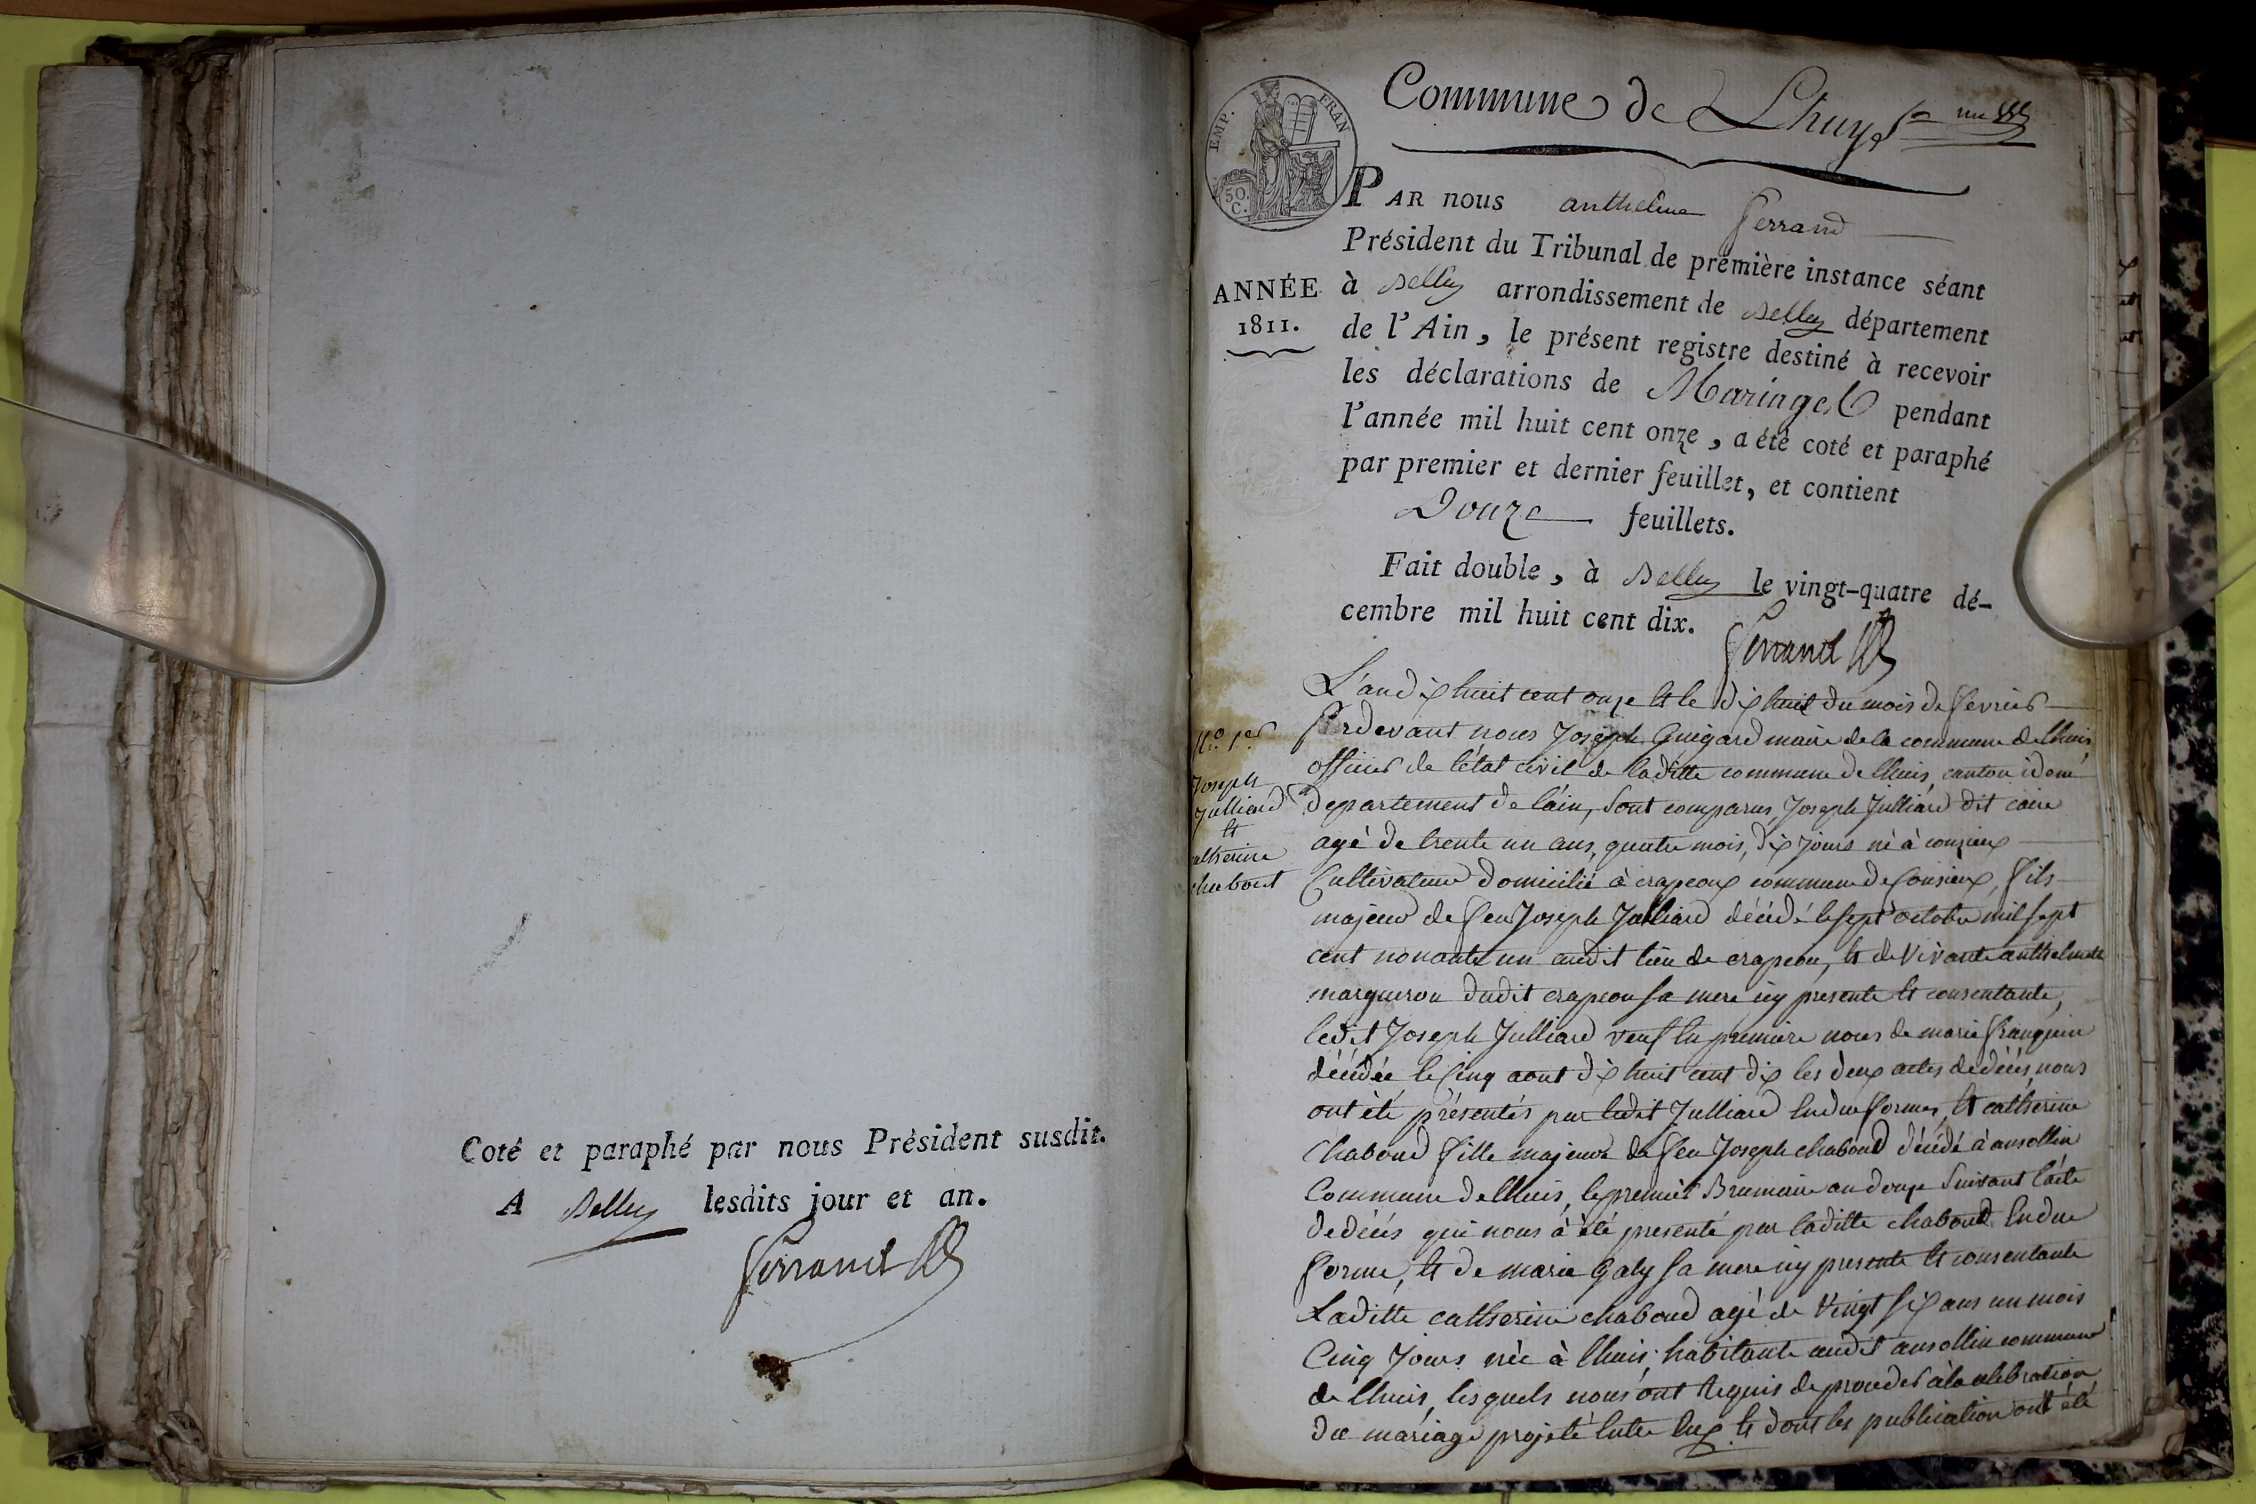 Coté et paraphé par nous Président susdit.
A Belley lesdits jour et an.
Ferrand
Commune de Lhuys
EMP. FRAN
50. C.
PAR nous anthelme Ferrand
Président du Tribunal de première instance séant
ANNÉE
1811.
à Belley arrondissement de Belley département
de l'Ain, le présent registre destiné à recevoir
les déclarations de Mariages pendant
l'année mil huit cent onze, a été coté et paraphé
par premier et dernier feuillet, et contient
Douze feuillets.
Fait double, à Belley le vingt-quatre dé-
cembre mil huit cent dix.
Ferrand
N.o 1er
Joseph
Julliard
et
catherine
chaboud
L'an dix huit cent onze et le dix huit du mois de fevrier
Pardevant nous Joseph Guigard maire de la commune de lhuis
officier de l'état civil de laditte commune de lhuis, canton idem
departement de l'ain, sont comparus, Joseph Julliard dit
agé de trente un ans, quatre mois, dix jours né à conzieux
Cultivateur domicilié à crapeoux commune de Conzieux, fils
majeur de feu Joseph Julliard décédé le sept octobre mil sept
cent nonante un audit lieu de crapeou, et de vivante anthelmette
margueron dudit crapeou sa mere icy presente et consentante,
ledit Joseph Julliard veuf en premiere noces de marie franquin
décédée le Cinq aout dix huit cent dix les deux actes de décés, nous
ont été présentés par ledit Julliard en due formes, et catherine
Chaboud fille majeure de feu Joseph chaboud décédé à ansollin
Commune de lhuis, le premier Brumaire an douze suivant l'acte
de décés qui nous à été presenté par laditte chaboud en due
forme, et de marie Galy sa mere icy presente et consentante
Laditte catherine chaboud agé de vingt six ans un mois
Cinq jours née à lhuis, habitante audit ansollin commune
de lhuis, lesquels nous ont requis de proceder à la celebration
du mariage projeté entre eux et dont les publication ont été